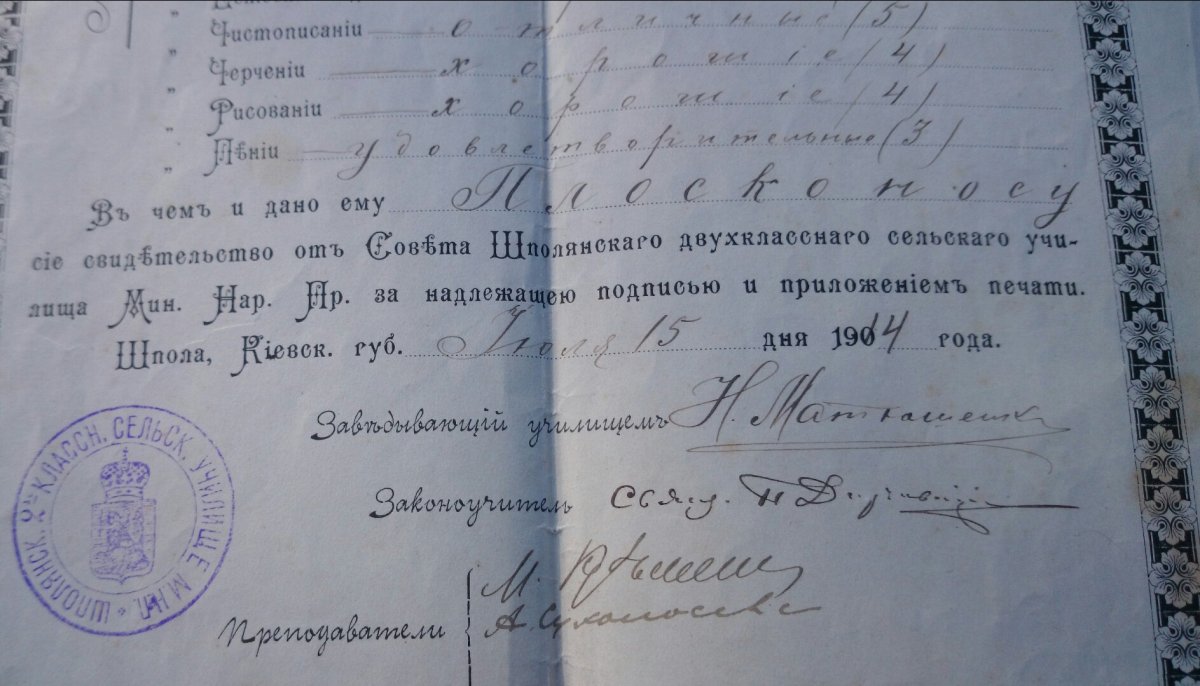 " Чистописаніи отличные (5)
" Черченіи хорошіе (4)
" Рисованіи хорошіе (4)
" Пѣніи удовлетворительные (3)
Въ чемъ и дано ему Плосконосу
сіе свидѣтельство отъ Совѣта Шполянскаго двухкласснаго сельскаго учи-
лища Мин. Нар. Пр. за надлежащею подписью и приложеніемъ печати.
Шпола, Кіевск. губ. Іюля 15 дня 1914 года.
Завѣдывающій училищемъ Н. Матюшенко
Законоучитель Свящ.
Преподаватели
М.
А.
ШПОЛЯНСК. 2ХЪ КЛАССН. СЕЛЬСК. УЧИЛИЩЕ М.Н.П.